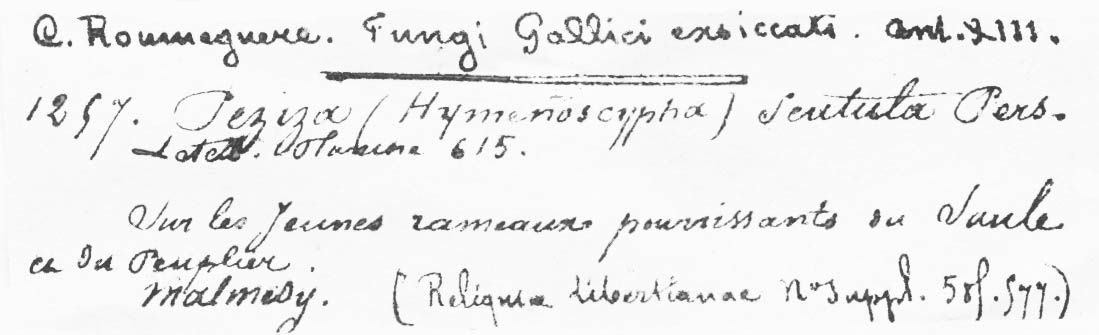 C. Roumeguere. Fungi Gallici exsiccati. Cent. XIII.
1257. Peziza (Hymenoscypha) Scutula Pers.
615.
Sur les Jeunes rameaux pourrissants du Saule
et du Peuplier.
Malmedy. (Reliquiae Libertianae No Suppl.